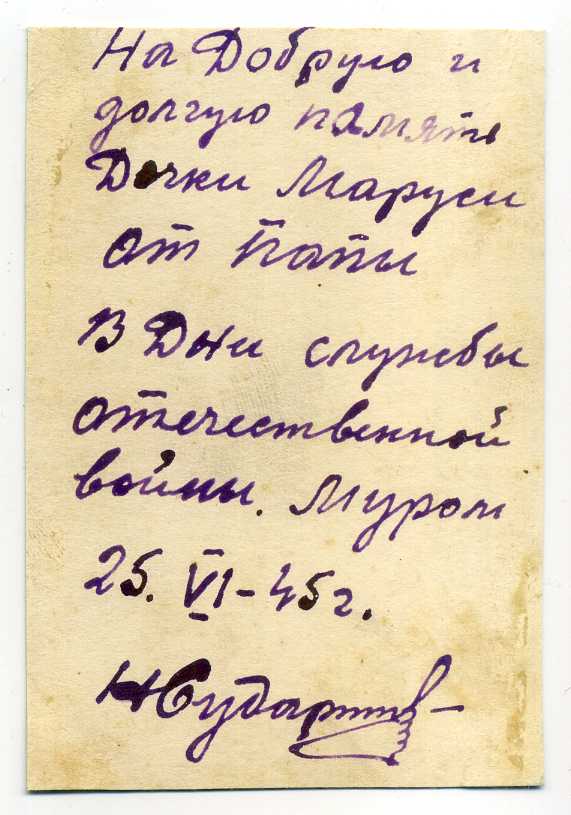 На Добрую и
долгую память
Дочки Маруси
от Папы
В Дни службы
отечественной
войны. Муром
25. VI-45 г.